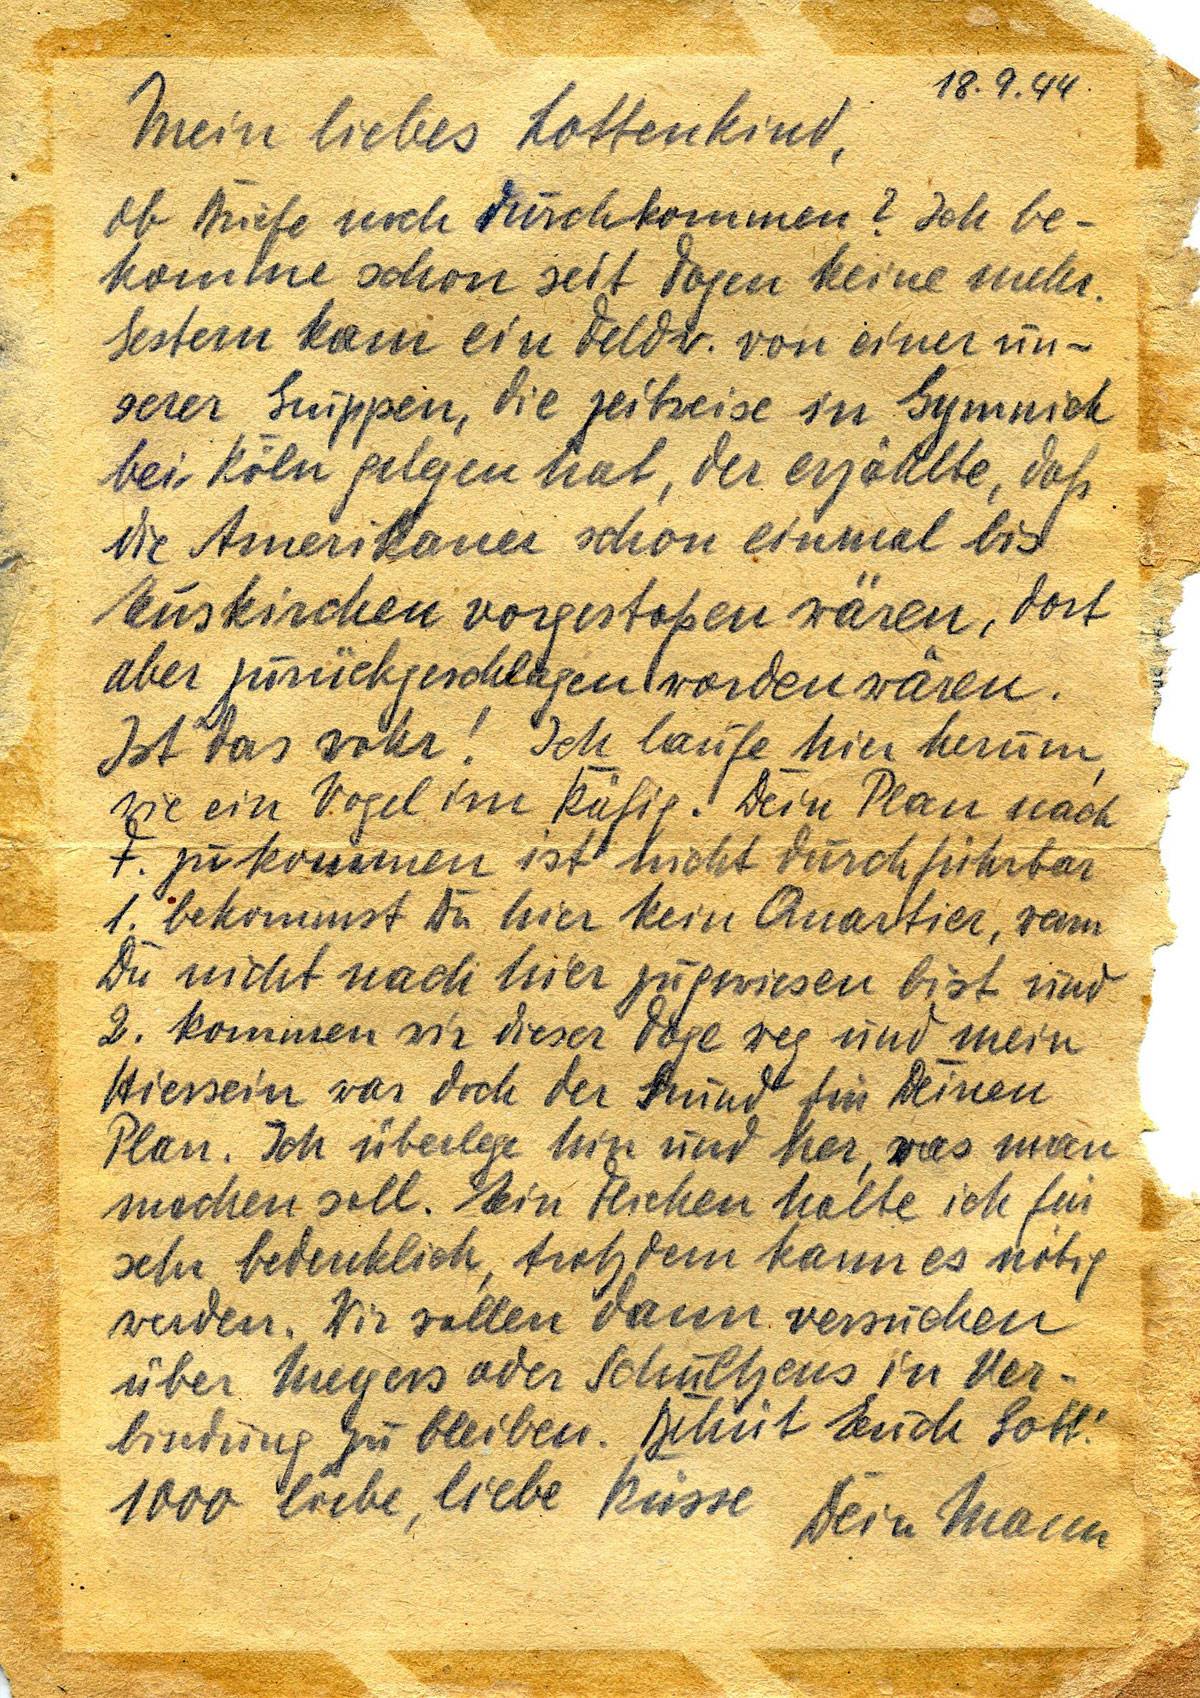 18.9.44
Mein liebes Lottenkind,
Ob Briefe noch durchkommen? Ich be-
komme schon seit Tagen keine mehr.
Gestern kam ein Feldw. von einer un-
serer Gruppen, die zeitweise in Gymnich
bei Köln gelegen hat, der erzählte, daß
die Amerikaner schon einmal bis
Euskirchen vorgestoßen wären, dort
aber zurückgeschlagen worden wären.
Ist das wahr! Ich laufe hier herum,
wie ein Vogel im Käfig. Dein Plan nach
F. zu kommen ist nicht durchführbar
1. bekommst Du hier kein Quartier, wenn
Du nicht nach hier zugewiesen bist und
2. kommen wir dieser Tage weg und mein
Hiersein war doch der Grund für Deinen
Plan. Ich überlege hin und her, was man
machen soll. Ein Fliehen halte ich für
sehr bedenklich, trotzdem kann es nötig
werden. Wir wollen dann versuchen
über Meyers oder Schultzens in Ver-
bindung zu bleiben. Behüt Euch Gott!
1000 liebe, liebe Küsse Dein Mann